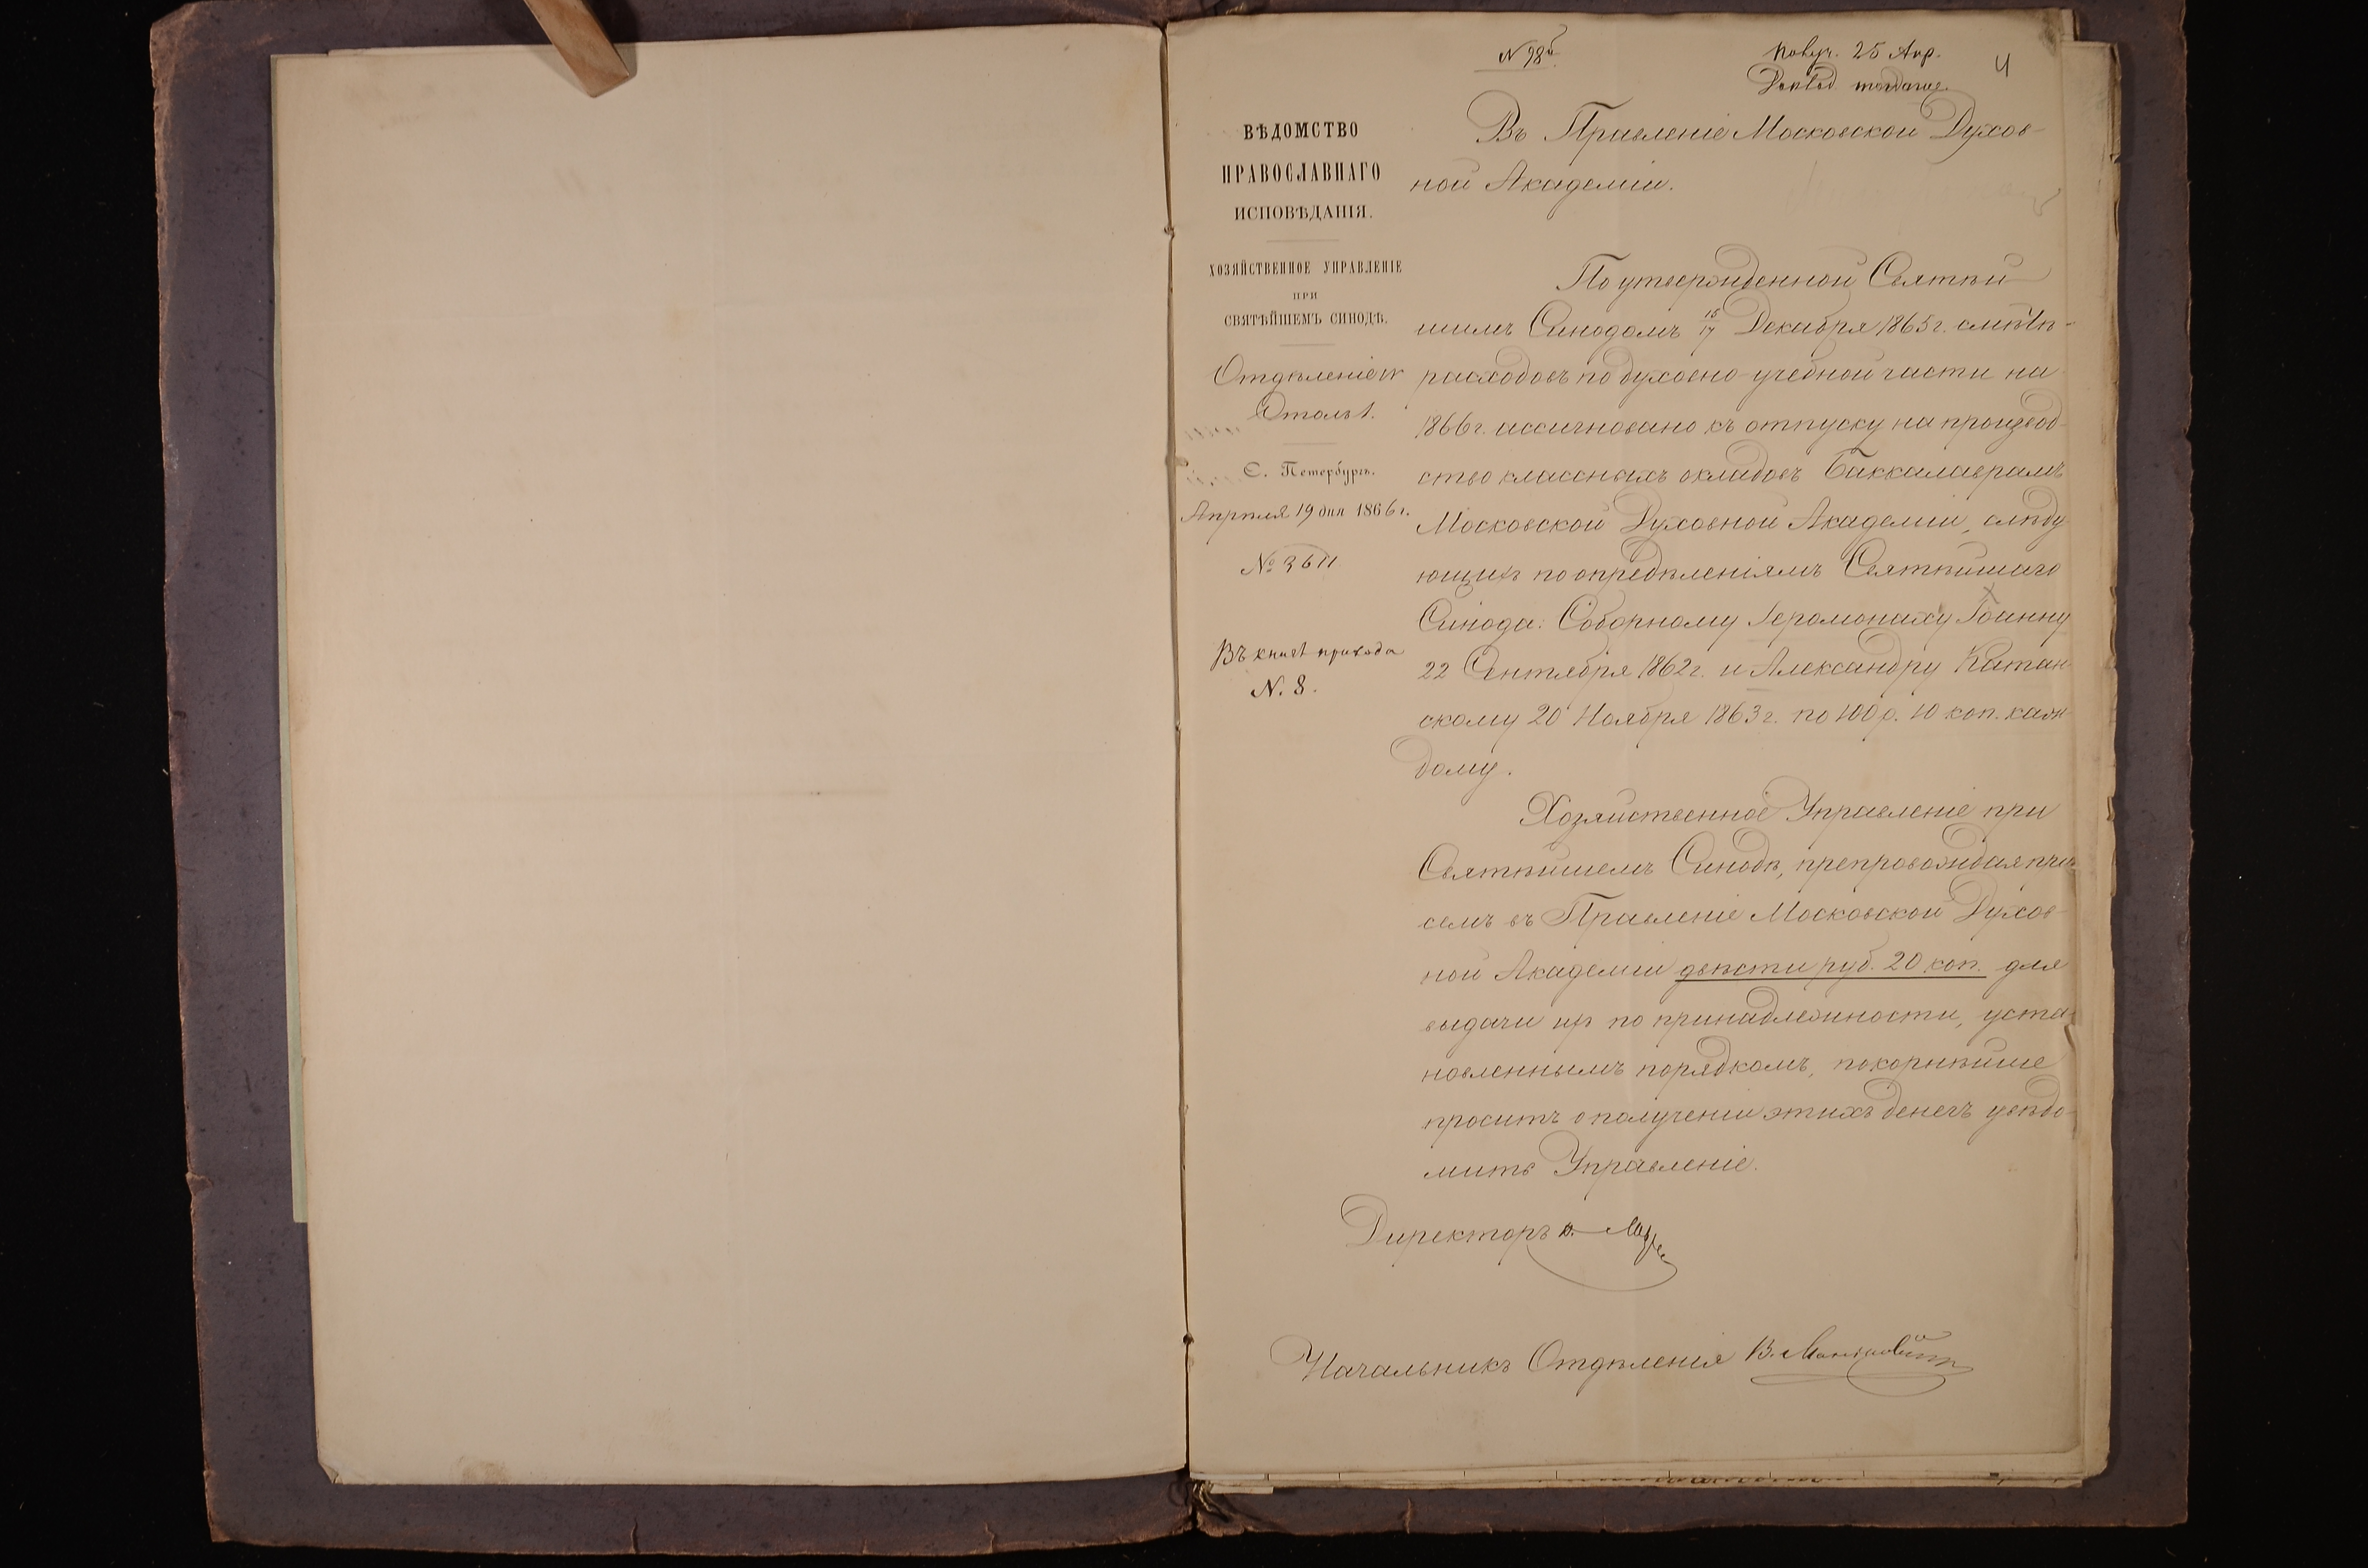 N 98й
Получ. 25 Апр.
Доклад. тогдаже.
4
ВѢДОМСТВО
ПРАВОСЛАВНАГО
ИСПОВѢДАНІЯ.
ХОЗЯЙСТВЕННОЕ УПРАВЛЕНІЕ
ПРИ
СВЯТѢЙШЕМЪ СИНОДѢ.
Отдѣленіе IV
Столъ 1.
С. Петербургъ.
Апрѣля 19 дня 1866 г.
№ 3611
Въ книгѣ прихода
N. 8.
Въ Правленіе Московской Духов-
ной Академіи.
По утвержденной Святѣй-
шимъ Синодомъ 15/17 Декабря 1865 г. смѣтѣ
расходовъ по духовно-учебной части на
1866 г. ассигновано къ отпуску на производ-
ство классныхъ окладовъ Баккалаврамъ
Московской Духовной Академіи, слѣду-
ющихъ по опредѣленіямъ Святѣйшаго
Синода: Соборному Іеромонаху Іоанну
22 Сентября 1862 г. и Александру Катан-
скому 20 Ноября 1863 г. по 100 р. 10 коп. каж-
дому.
Хозяйственное Управленіе при
Святѣйшемъ Синодѣ, препровождая при
семъ въ Правленіе Московской Духов-
ной Академіи двѣсти руб. 20 коп. для
выдачи ихъ по принадлежности, уста-
новленнымъ порядкомъ, покорнѣйше
проситъ о полученіи этихъ денегъ увѣдо-
мить Управленіе.
Директоръ
Начальникъ Отдѣленія В.